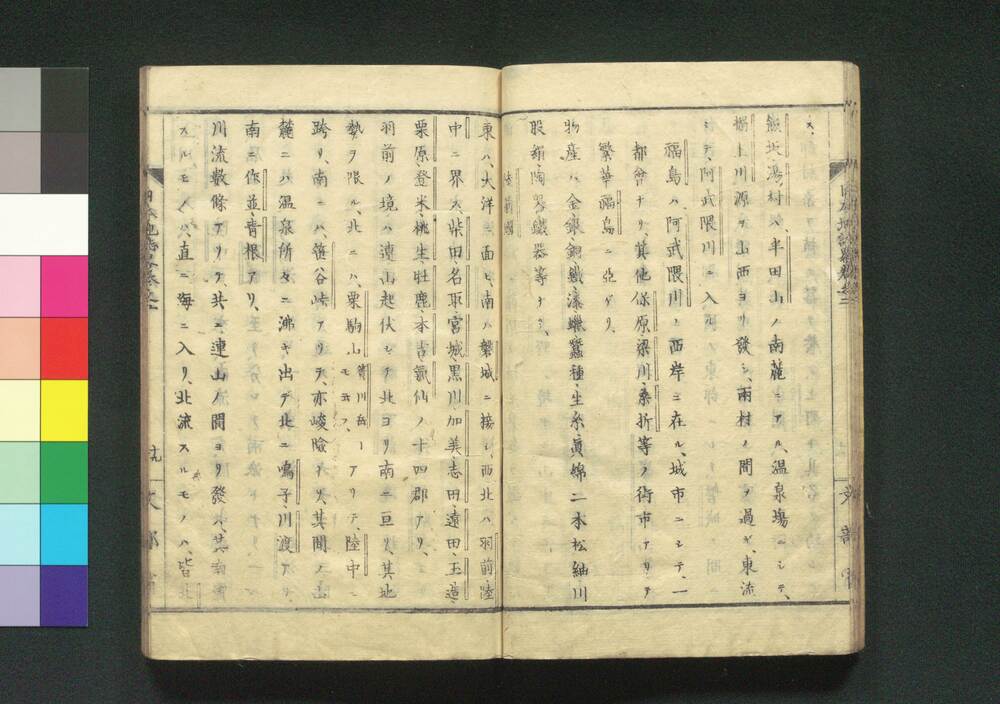 ス、
熊坂、湯村ハ半田山ノ南麓ニアル、温泉塲ニシテ、
摺上川源ヲ山西ヨリ發シ、兩村ノ間ヲ過ギ、東流
シテ、阿武隈川ニ入ル、
福島ハ阿武隈川ノ西岸ニ在ル、城市ニシテ、一
都會ナリ、其他保原梁川桑折等ノ街市アリテ
繁華福島ニ亞グ、
物産ハ金銀銅鐵漆蠟蠶種生糸眞綿二本松紬川
股絹陶器鐵器等ナリ、
陸前國
東ハ、大洋ニ面シ、南ハ磐城ニ接シ、西北ハ羽前陸
中ニ界ス、柴田、名取、宮城、黒川、加美、志田、遠田、玉造、
栗原、登米、桃生、牡鹿、本吉、氣仙ノ十四郡アリ、
羽前ノ境ハ連山起伏シテ北ヨリ南ニ亘リ其地
勢ヲ限ル、北ニハ、栗駒山アリテ、陸中ニ
跨リ、南ニハ、笹谷峠アリテ、亦峻險ナリ、其間ノ
麓ニハ温泉所々ニ沸キ出デ北ニ鳴子、川渡アリ、
南ニ作並青根アリ、
川流數條アリテ、共ニ連山ノ間ヨリ發ス、其南流
スルモノハ、直ニ海ニ入リ、北流スルモノハ、皆北